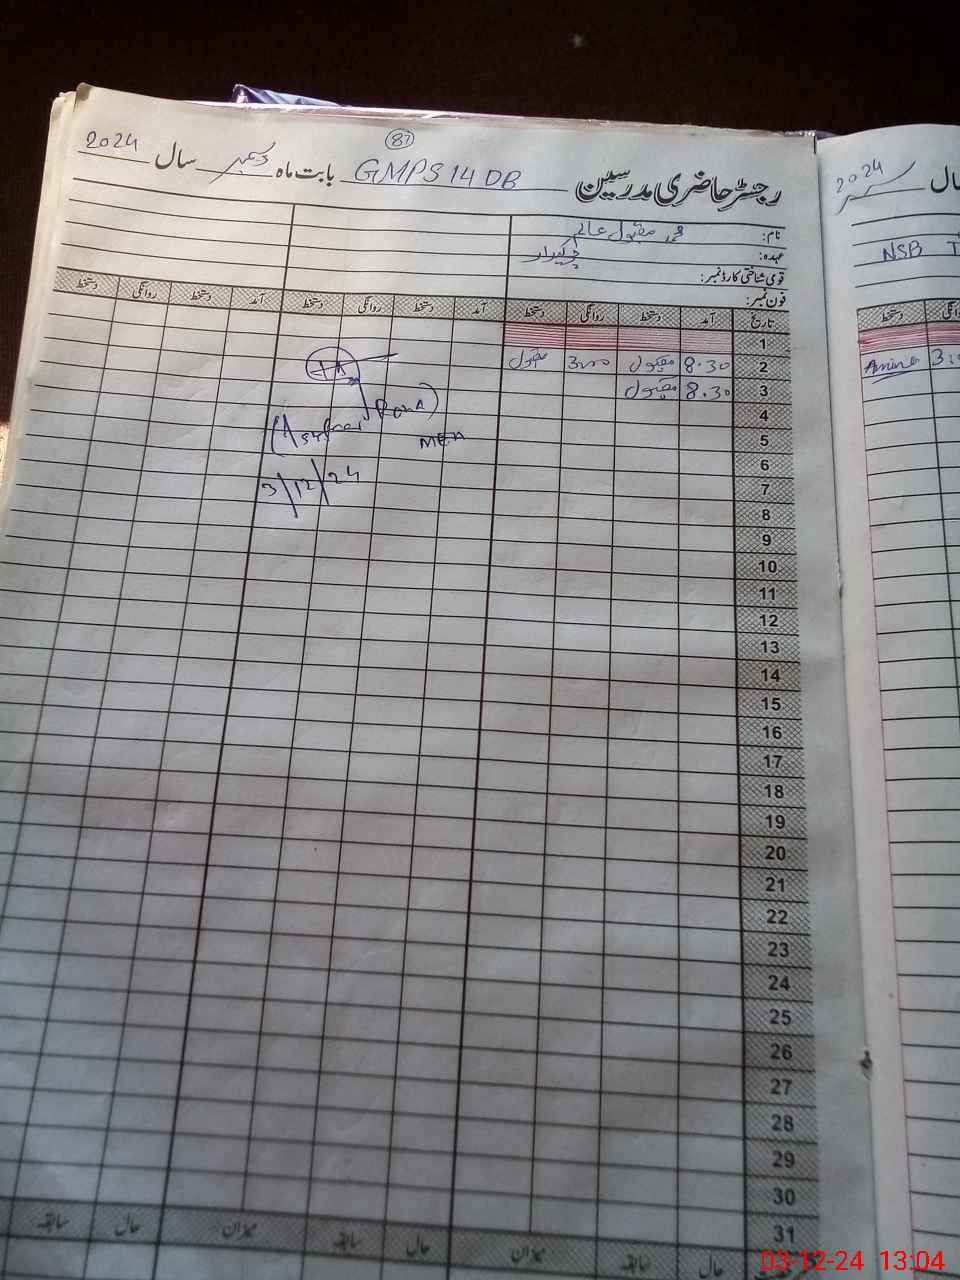 87
رجسٹر حاضری مدرسین GMPS 14 DB بابت ماہ دسمبر سال 2024
نام: محمد مقبول عالم
عہدہ: چوکیدار
قومی شناختی کارڈ نمبر:
فون نمبر:
تاریخ آمد دستخط روانگی دستخط آمد دستخط روانگی دستخط آمد دستخط روانگی دستخط
1
2 8.30 مقبول 3:00 مقبول
3 8.30 مقبول
4
5
6
7
8
9
10
11
12
13
14
15
16
17
18
19
20
21
22
23
24
25
26
27
28
29
30
31
حال سابقہ میزان حال سابقہ میزان حال سابقہ
Rana)
MEA
3/12/24
سال 2024
NSB
دستخط
Amina 3:
03-12-24 13:04